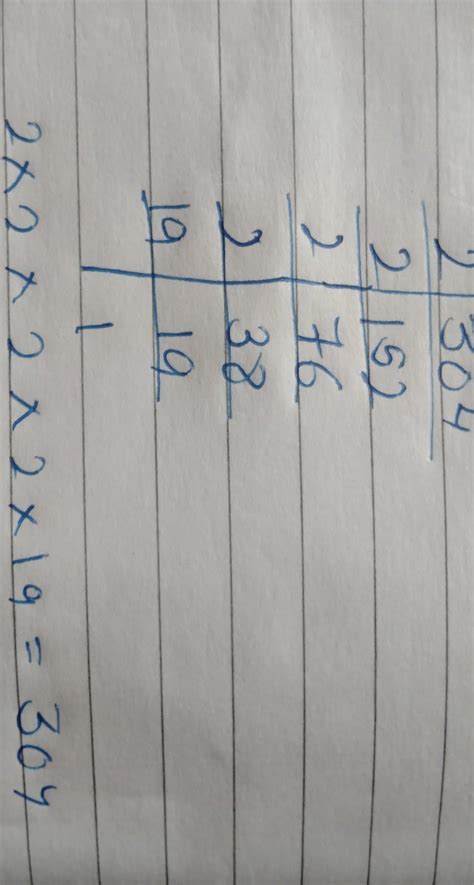 2 304
2 152
2 76
2 38
19 19
1
2 x 2 x 2 x 2 x 19 = 304